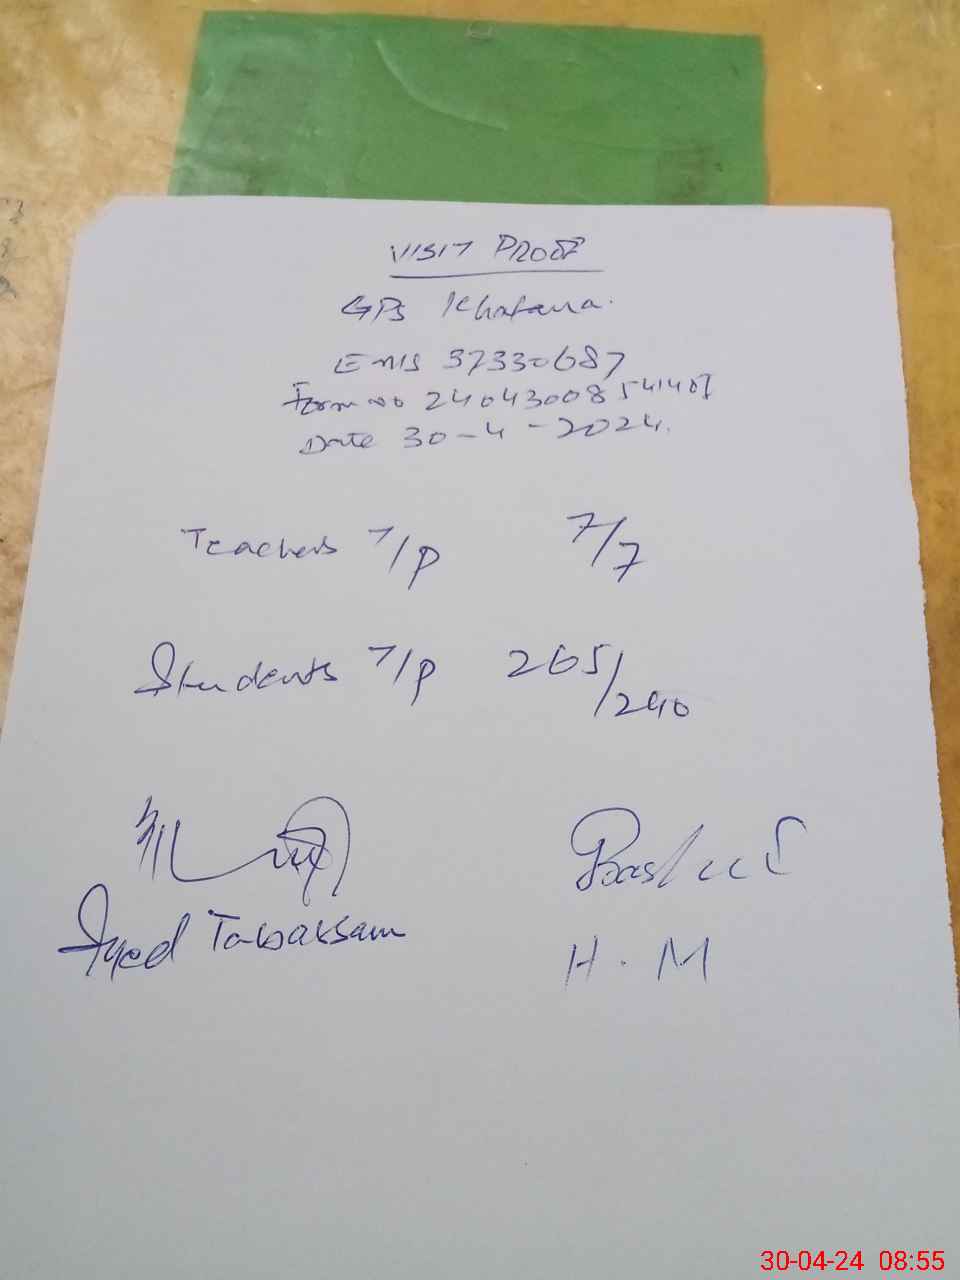 VISIT PROOF
GPS Khatana.
EMIS 37330687
Form no 24043008541407
Date 30-4-2024.
Teachers T/P 7/7
Students T/P 265/240
Syed Tabassam
Bashir
H.M
30-04-24 08:55